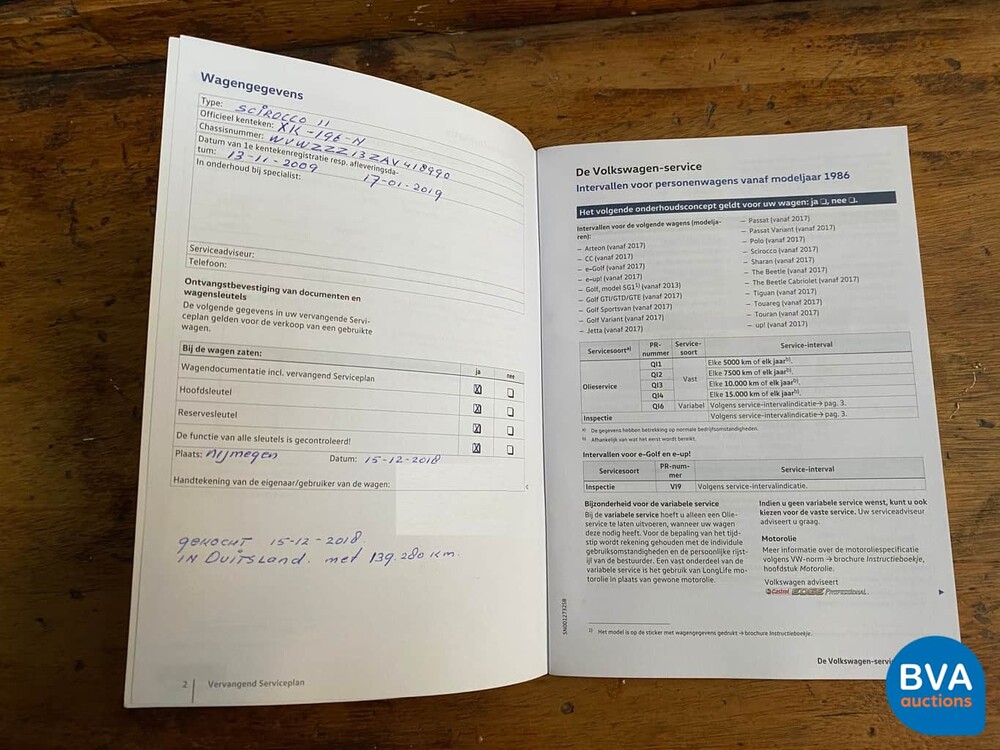 Wagengegevens
Type: SCIROCCO II
Officieel kenteken: XK-196-N
Chassisnummer: WVWZZZ13ZAV418990
Datum van 1e kentekenregistratie resp. afleveringsda-
tum: 13-11-2009 17-01-2019
In onderhoud bij specialist:
Serviceadviseur:
Telefoon:
Ontvangstbevestiging van documenten en
wagensleutels
De volgende gegevens in uw vervangende Servi-
ceplan gelden voor de verkoop van een gebruikte
wagen.
Bij de wagen zaten: ja nee
Wagendocumentatie incl. vervangend Serviceplan
Hoofdsleutel
Reservesleutel
De functie van alle sleutels is gecontroleerd!
Plaats: Nijmegen Datum: 15-12-2018
Handtekening van de eigenaar/gebruiker van de wagen:
gekocht 15-12-2018
IN DUITSLAND. met 139.280 km.
2 Vervangend Serviceplan
De Volkswagen-service
Intervallen voor personenwagens vanaf modeljaar 1986
Het volgende onderhoudsconcept geldt voor uw wagen: ja ❑, nee ❑.
Intervallen voor de volgende wagens (modelja-
ren):
– Arteon (vanaf 2017)
– CC (vanaf 2017)
– e-Golf (vanaf 2017)
– e-up! (vanaf 2017)
– Golf, model 5G1¹⁾ (vanaf 2013)
– Golf GTI/GTD/GTE (vanaf 2017)
– Golf Sportsvan (vanaf 2017)
– Golf Variant (vanaf 2017)
– Jetta (vanaf 2017)
– Passat (vanaf 2017)
– Passat Variant (vanaf 2017)
– Polo (vanaf 2017)
– Scirocco (vanaf 2017)
– Sharan (vanaf 2017)
– The Beetle (vanaf 2017)
– The Beetle Cabriolet (vanaf 2017)
– Tiguan (vanaf 2017)
– Touareg (vanaf 2017)
– Touran (vanaf 2017)
– up! (vanaf 2017)
Servicesoortᵃ⁾ PR-nummer Service-soort Service-interval
Olieservice
QI1 Elke 5000 km of elk jaarᵇ⁾.
QI2 Vast Elke 7500 km of elk jaarᵇ⁾.
QI3 Elke 10.000 km of elk jaarᵇ⁾.
QI4 Elke 15.000 km of elk jaarᵇ⁾.
QI6 Variabel Volgens service-intervalindicatie → pag. 3.
Inspectie Volgens service-intervalindicatie → pag. 3.
a) De gegevens hebben betrekking op normale bedrijfsomstandigheden.
b) Afhankelijk van wat het eerst wordt bereikt.
Intervallen voor e-Golf en e-up!
Servicesoort PR-num-mer Service-interval
Inspectie VI9 Volgens service-intervalindicatie.
Bijzonderheid voor de variabele service
Bij de variabele service hoeft u alleen een Olie-
service te laten uitvoeren, wanneer uw wagen
deze nodig heeft. Voor de bepaling van het tijd-
stip wordt rekening gehouden met de individuele
gebruiksomstandigheden en de persoonlijke rijst-
ijl van de bestuurder. Een vast onderdeel van de
variabele service is het gebruik van LongLife mo-
torolie in plaats van gewone motorolie.
Indien u geen variabele service wenst, kunt u ook
kiezen voor de vaste service. Uw serviceadviseur
adviseert u graag.
Motorolie
Meer informatie over de motoroliespecificatie
volgens VW-norm → brochure Instructieboekje,
hoofdstuk Motorolie.
Volkswagen adviseert
Castrol EDGE Professional
1) Het model is op de sticker met wagengegevens gedrukt → brochure Instructieboekje.
De Volkswagen-servi
BVA
auctions